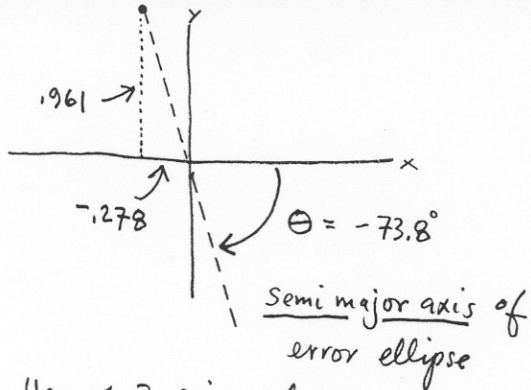 Y
.961
X
-.278
Θ = -73.8°
semi major axis of
error ellipse